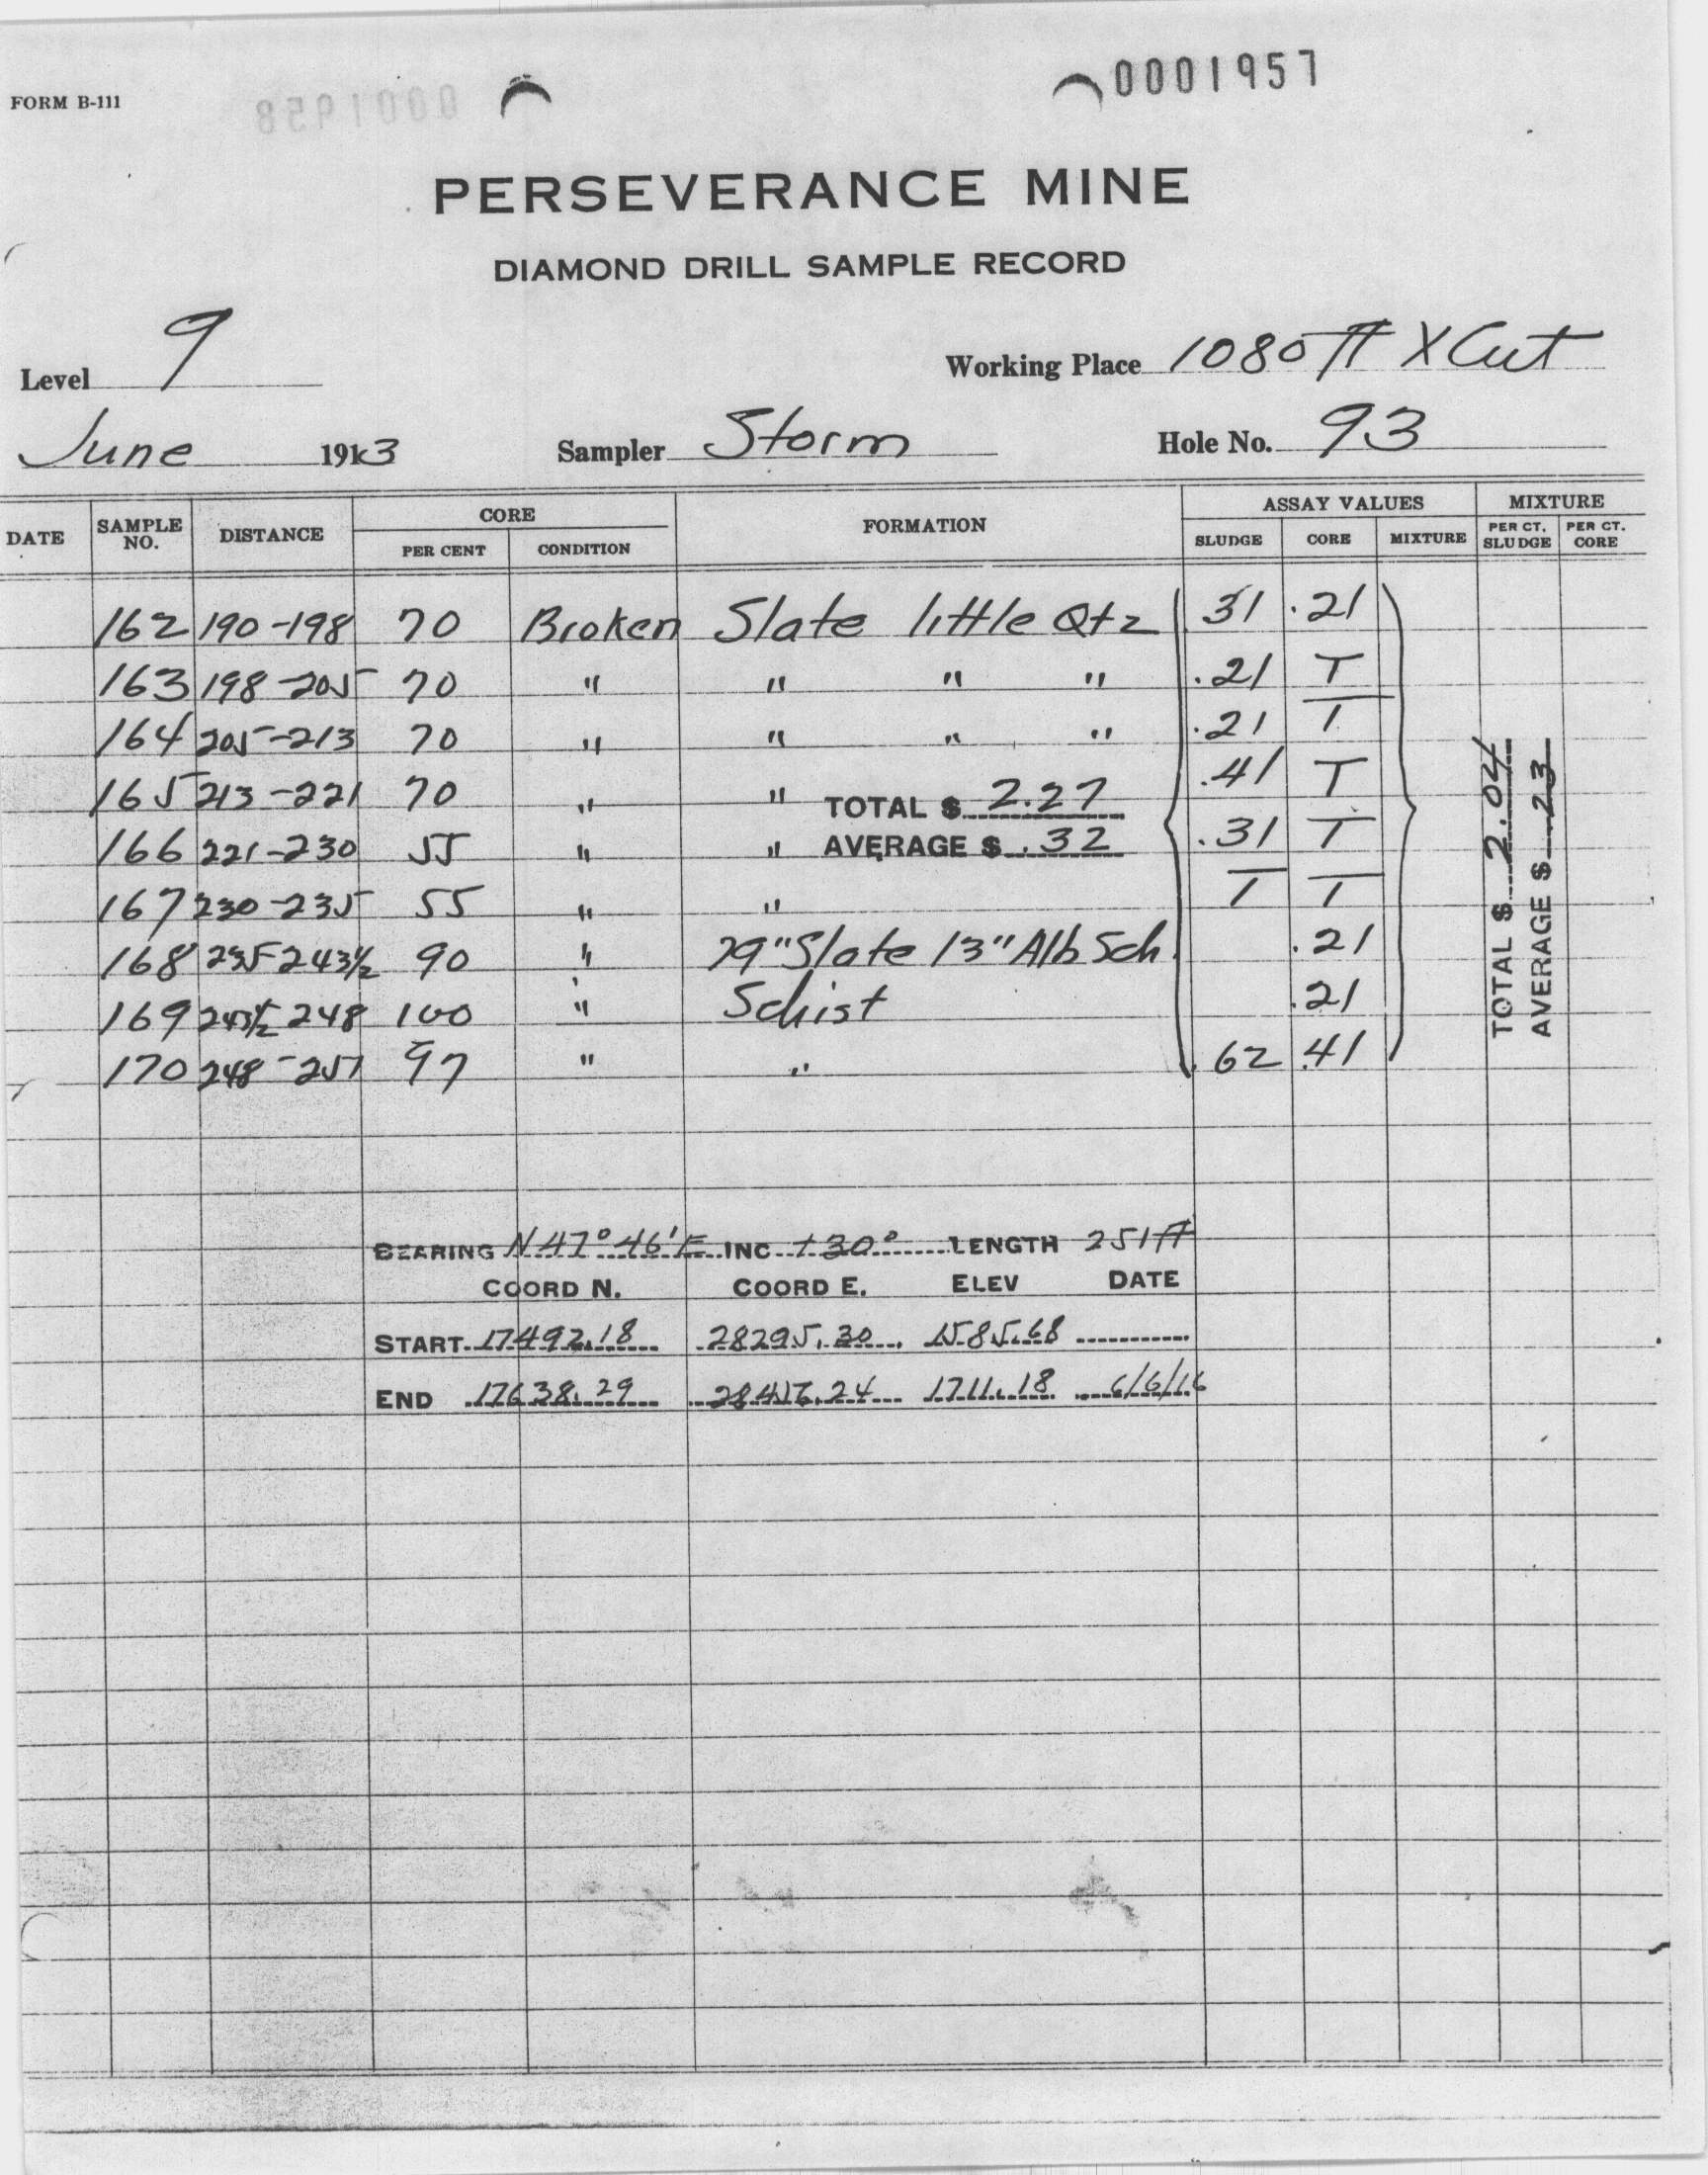 0001957
FORM B-111
0001958
PERSEVERANCE MINE
DIAMOND DRILL SAMPLE RECORD
Level 9 Working Place 1080 ft X Cut
June 1913 Sampler Storm Hole No. 93
DATE SAMPLE NO. DISTANCE CORE PER CENT CONDITION FORMATION ASSAY VALUES SLUDGE CORE MIXTURE MIXTURE PER CT. SLUDGE PER CT. CORE
162 190-198 70 Broken Slate little Qtz .31 .21
163 198-205 70 " " " " .21 T
164 205-213 70 " " " " .21 T
165 213-221 70 " " TOTAL $ 2.27 .41 T
166 221-230 55 " " AVERAGE $ .32 .31 T
167 230-235 55 " " T T
168 235-243½ 90 " 79" Slate 13" Alb Sch. .21
169 243½ 248 100 " Schist .21
170 248-251 97 " " .62 .41
TOTAL $ 2.04
AVERAGE $ .23
BEARING N 47° 46' E INC +30° LENGTH 251 ft
COORD N. COORD E. ELEV DATE
START 17492.18 28295.30 1585.68
END 17638.29 1711.18 6/6/16